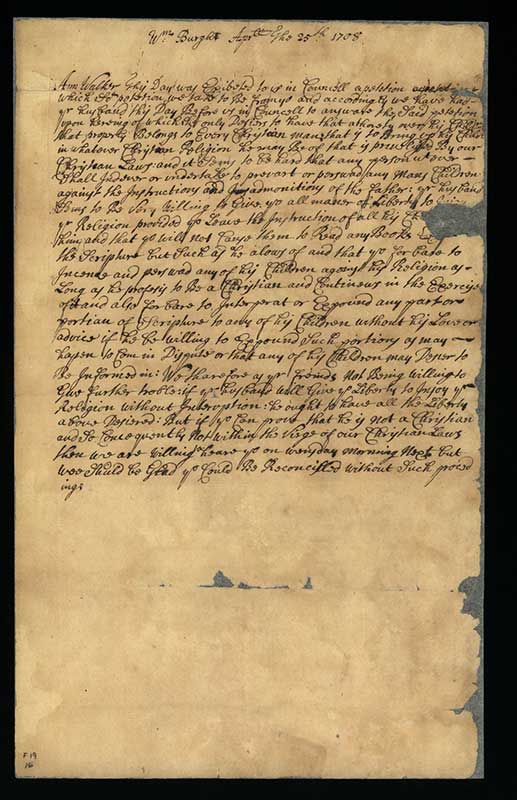 Wms Burgh Aprll the 25th 1708
Ann Walker this Day was Exibeted to us in Councell a petition
which sd petition, we take to Be yours and accordingly we have had
yr Husband this Day Before us in Councell to answare the Said petition
upon hereing of which he only Desiers to have that athority over his
that properly Belongs to Every Christian man that is to Bring up his
in whatever Christian Religion he may Be of that is priveliged By our
Christian Laws and it Seems to be hard that any person whatever
Shall Indever or undertake to prevart or perswad any Mans Children
against the Instructions and admonitions of the Father: yr Husband
Seems to be Very willing to Give yo all maner of Liberty to
yr Religion provided yo Leave the Instruction of all his
him, and that yo will not Cause them to Read any Books
the Scripture but Such as he alows of and that yo for bare to
Incence and perswad any of his Children against his Religion as
Long as he profess to Be a Christian and Contineus in the Exercise
of it and also for bare to Interperat or Expound any part or
portian of Scripture to any of his Children without his Love or
advice if he Be willing to Expound Such portions as may
hapen to Com in Dispute or that any of his Children may Desier to
Be Informed in: We tharefore as yr Frends Not Being willing to
Give Further troble: if yr Husband will Give yo Liberty to Injoy yr
Relegion without Interoption: he ought to have all the Liberty
above Desiered: But if yo Can prove that he is not a Christian
and So Concequently Not within the Virge of our Christian Laws
then we are willing heare yo on wensday Morning Next but
wee Should be Glad yo Could Be Reconcilled without Such proced
ings
F 19
16